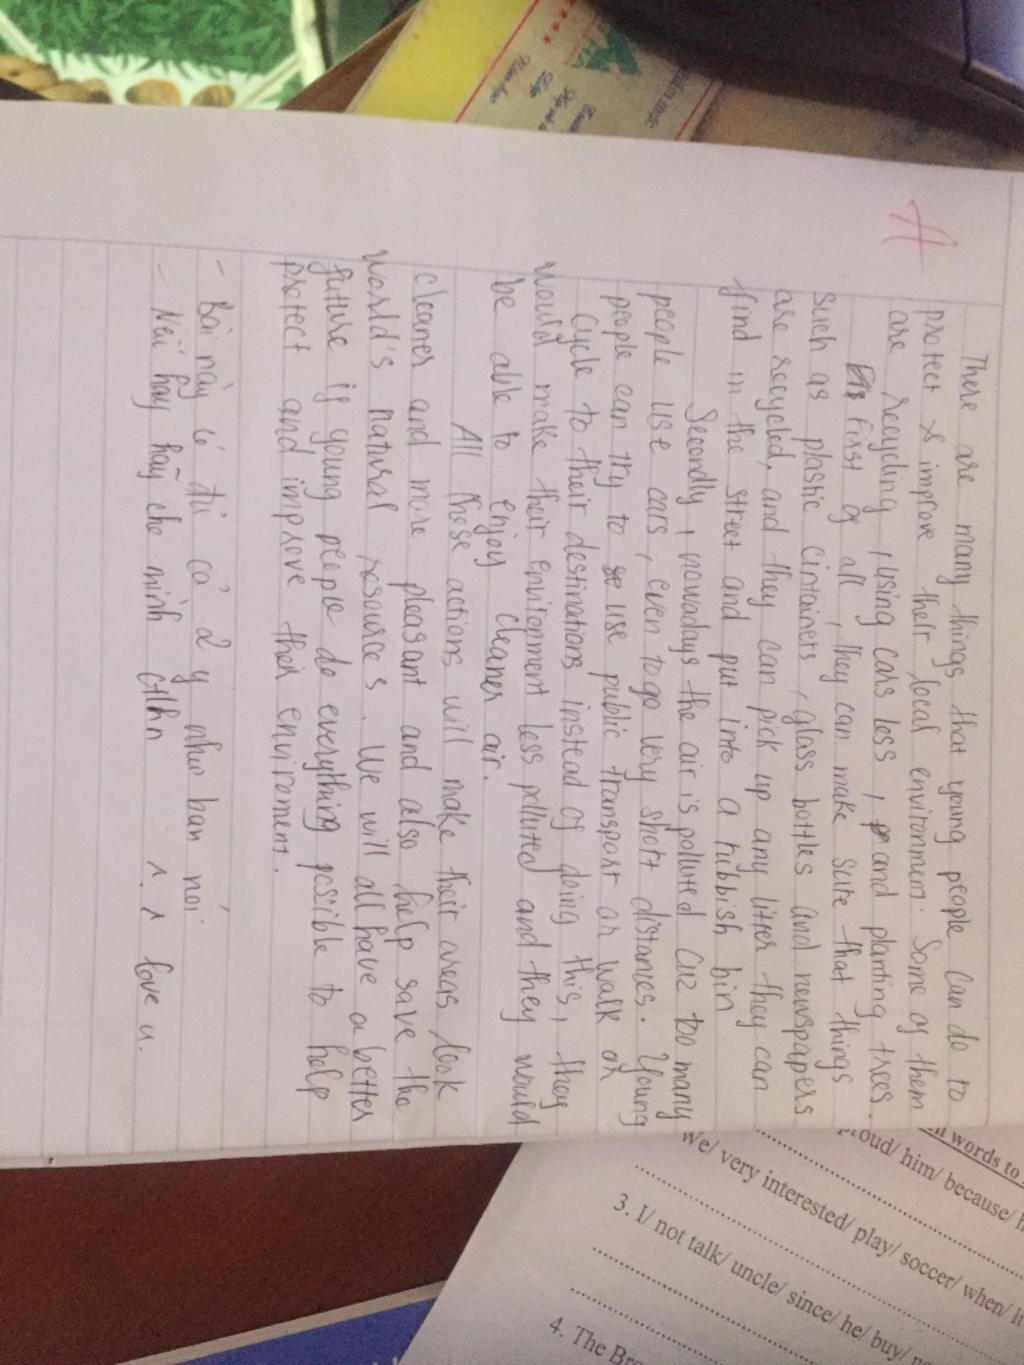 There are many things that young people can do to
protect & improve their local environment. Some of them
are recycling, using cars less, and planting trees.
First of all, they can make sure that things
such as plastic cintainers, glass bottles and newspapers
are recycled, and they can pick up any litter they can
find in the street and put into a rubbish bin
Secondly, nowadays the air is polluted cuz too many
people use cars, even to go very short distances. Young
people can try to use public transport or walk or
cycle to their destinations instead of doing this, they
would make their enviroment less polluted and they would
be able to enjoy cleaner air.
All these actions will make their areas look
cleaner and more pleasant and also help save the
world's natural resources. We will all have a better
future if young people do everything possible to help
protect and improve their enviroment.
- Bài này có đủ cả 2 ý như bạn nói
- Nếu hay hãy cho mình ctlhn ^.^ love u.
words to
proud/ him/ because/
We/ very interested/ play/ soccer/ when/
3. I/ not talk/ uncle/ since/ he/ buy/
4. The